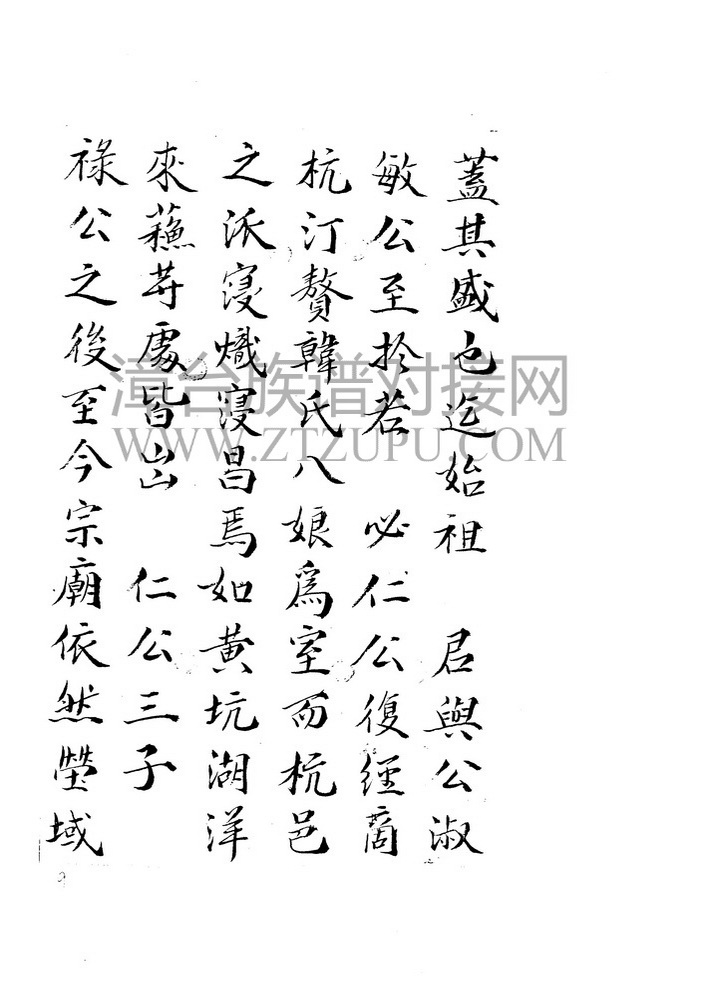 蓋其盛也迄始祖 君與公淑
敏公至於若 必仁公復經商
杭汀贅韓氏八娘爲室而杭邑
之派寖熾寖昌焉如黃坑湖洋
來蘓等處皆出 仁公三子
祿公之後至今宗廟依然塋域
漳台族谱对接网
WWW.ZTZUPU.COM